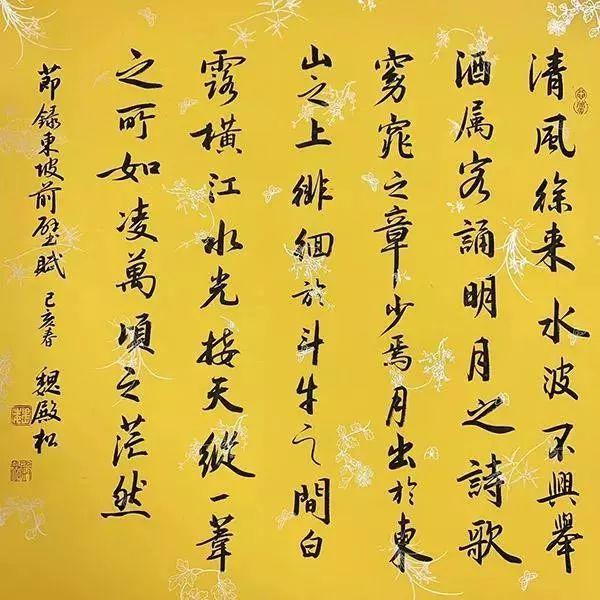 清風徐来水波不興舉
酒属客誦明月之詩歌
窈窕之章少焉月出於東
山之上徘徊於斗牛之間白
露橫江水光接天縱一葦
之所如凌萬頃之茫然
節録東坡前壁賦 己亥春 魏殿松